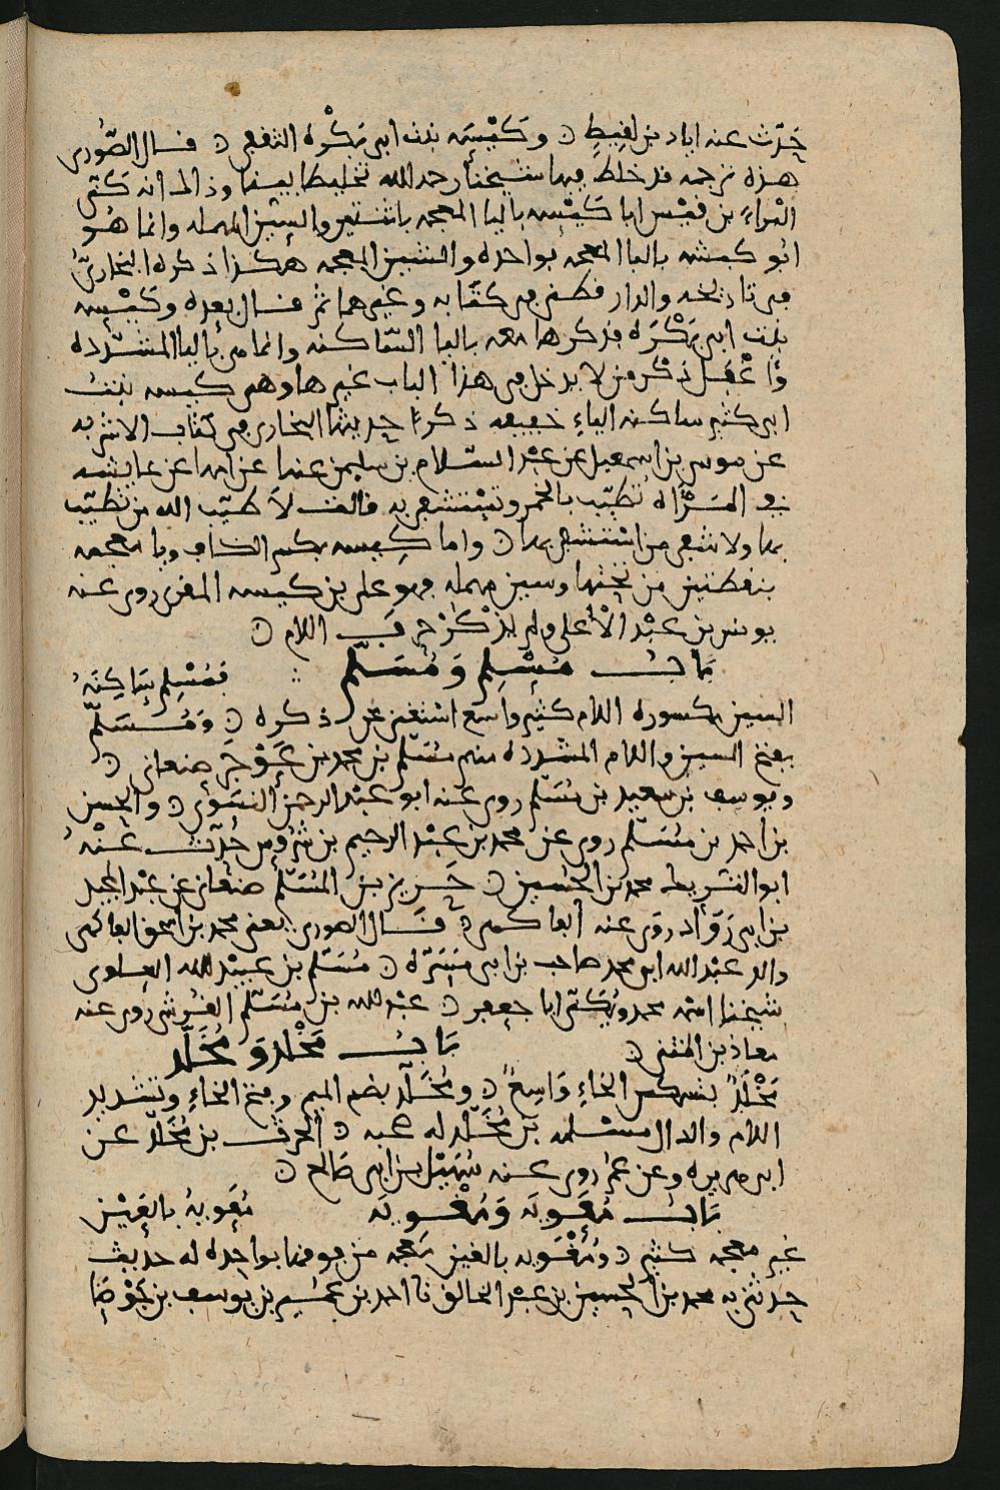 حدّث عنه اياد بن لقيطٍ ۞ وكَيّسَه بنت ابى بَكْره الثقفى ۞ قــال الصُّورى
هذه ترجمه قد خلط فيها شيخنا رحمه الله تخليطا بيّنا وذالك انه كَنّى
البْراء بن قيْس ابا كَيّسه باليا المعجمه باثنتين والسِّين المهمله وانما هُو
ابُو كبشه بالبا المعجمه بواحده والشين المعجمه هكذا ذكره البخارىُّ
فى تاريخه والدارقطنى فى كتابه وغيرهما ثم قــال بعده وكَيّسه
بنت ابى بَكْرَه فذكرها معه باليا السّاكنه وانما هى باليا المشدّده
واغْفــل ذكْر من لا يدخل فى هذا الباب غيرها وهى كبيسه بنت
ابى كثير ساكنه الياءِ خفيفه ذكرَ حديثها البخارى فى كتاب الاشربه
عن موسى بن اسمعيل عن عبْد السّلام بن سليمن عنها عن امها عن عايشه
فى المَرْاه تطيّب بالخمر وتَسْتشفى به قالت لاَ طيّب الله من تطيّب
بها ولا شفى من اسْتشفى بها ۞ واما كِيسه بكسر الكاف ويا معجمه
بنقطتين من تحتها وسين مهمله فهو على بن كيسه المقرى روى عنه
يونس بن عبْد الاْعلى ولم يذْكُرْ حرفَ اللام ۞
بَابُ مُسْلِمٍ وَمُسَلَّمٍ
فَمُسْلِم بسَاكِنَهُ
السين مكسوره اللام كثير واسع اسْتغنى عن ذكره ۞ وَمُسَلَّمٌ
بفتح السين واللام المشدده منهم مُسَلَّم بن محمد بن عَوْجَرٍ صنعانى ۞
ويوسف بن سعيد بن مُسَلَّم روى عنه ابو عبْد الرحمن النسَوىّ ۞ والحسن
بن احمد بن مُسَلَّم روى عن محمد بن عبْد الرحيم بن شرُوس حُدّث عَنْهُ
ابو الشريط محمد بن الحُسين ۞ حَــريز بن المُسَلَّم صنعانى عن عبْد المجيد
بن ابى رَوّاد روَى عنه الفاكهى ۞ قَــال الصورى يعنى محمد بن اسحق الفاكهى
والد عبْد الله ابو محمد صاحب بن ابى مَسَرَّه ۞ مُسَلَّم بن عبيْد الله العلوى
شيخنا اسْمه محمد ويُكَنّى ابا جعفر ۞ عبْد الله بن مُسَلَّم القُرشى روى عنه
معاذ بن المثنى ۞
بَابُ مَخْلَد وَ مُخَلَّد
مَخْلَدٌ بتسكين الخاءِ وَاسِعٌ ۞ ومُخَلَّد بضم الميم وفتح الخاءِ وتشديد
اللام والدال مسْــلمه بن مُخَلَّد له صحبه ۞ الحرث بن مُخَلَّد عن
ابى هريره وعن عُمَر روى عنــه سُهيْل بن ابى صَالح ۞
بَابُ مُعَــويَه وَمُغْــويَه
مُعَويهُ بالعَيْن
غير معجمه كثير ۞ ومُغْوَيه بالغين مُعجمه من فوقها بواحِده له حديث
حدثنى به محمد بن الحسين بن عبد الخالق نا احمد بن عُميْر بن يوسف بن جَوْصَا